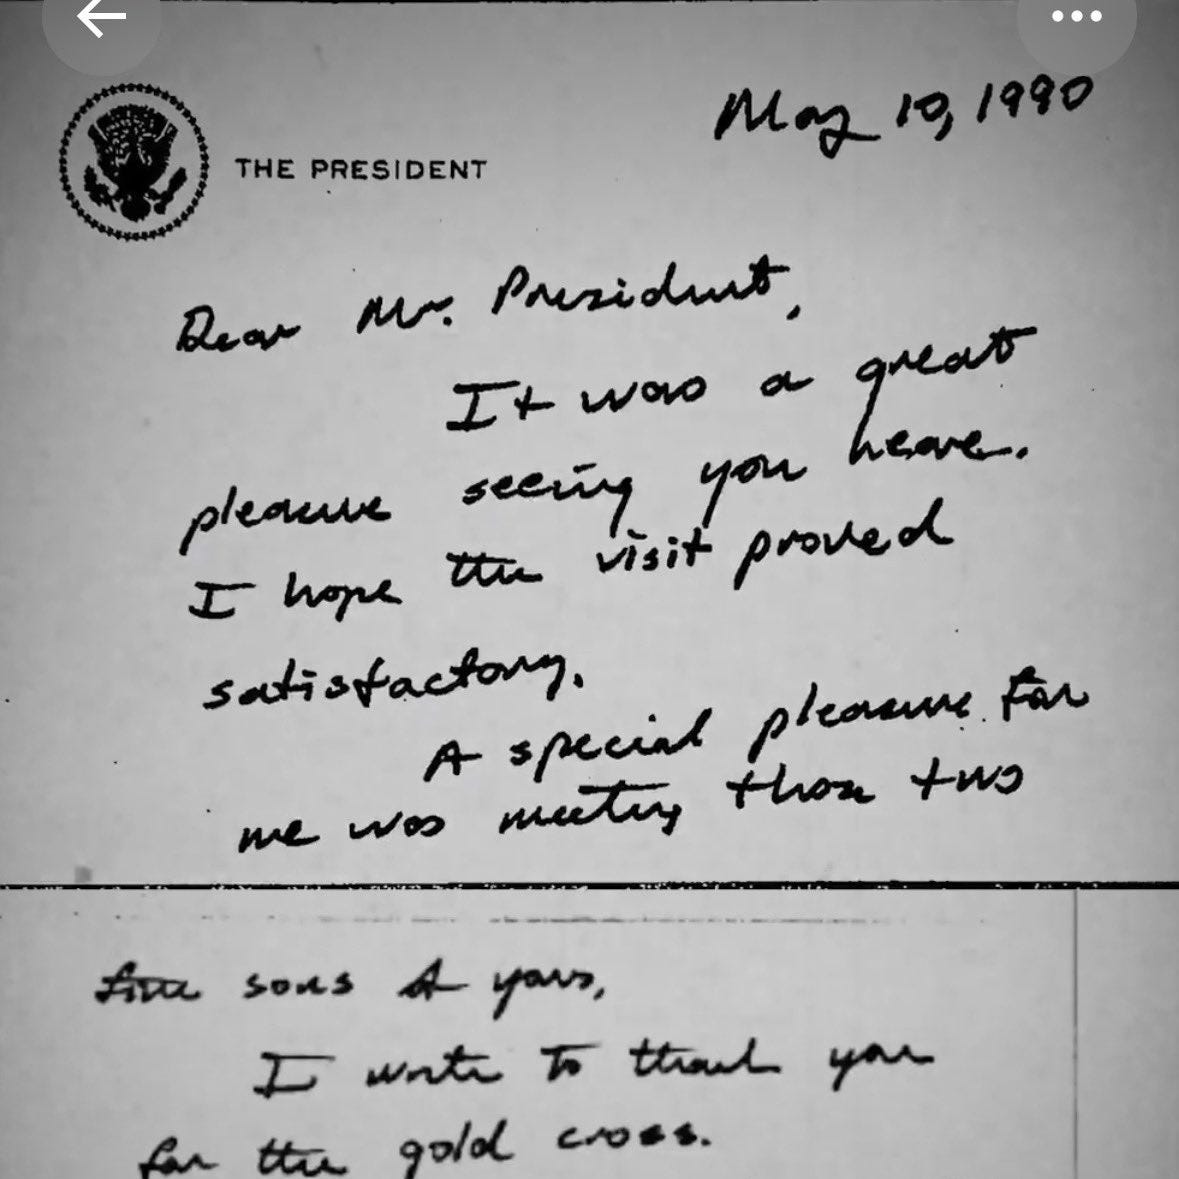 May 10, 1990
THE PRESIDENT
Dear Mr. President,
It was a great
pleasure seeing you here.
I hope the visit proved
satisfactory.
A special pleasure for
me was meeting those two
fine sons of yours,
I write to thank you
for the gold cross.